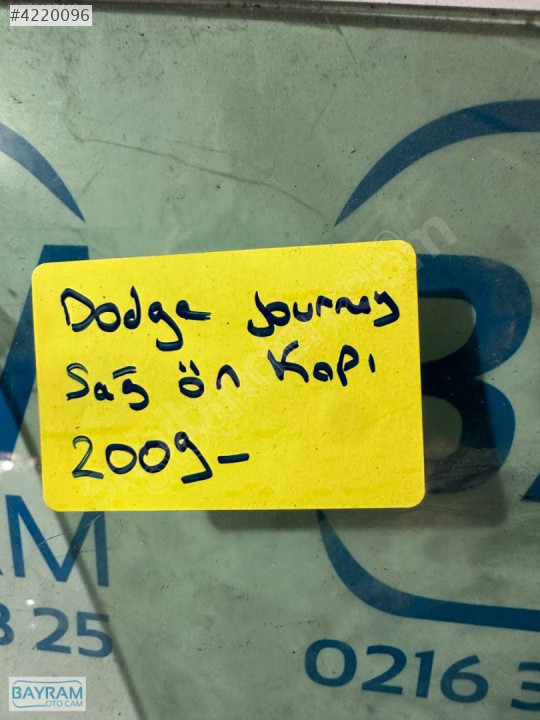 #4220096
Dodge Journey
Sağ ön Kapı
2009-
AM
3 25
0216 3
BAYRAM
OTO CAM